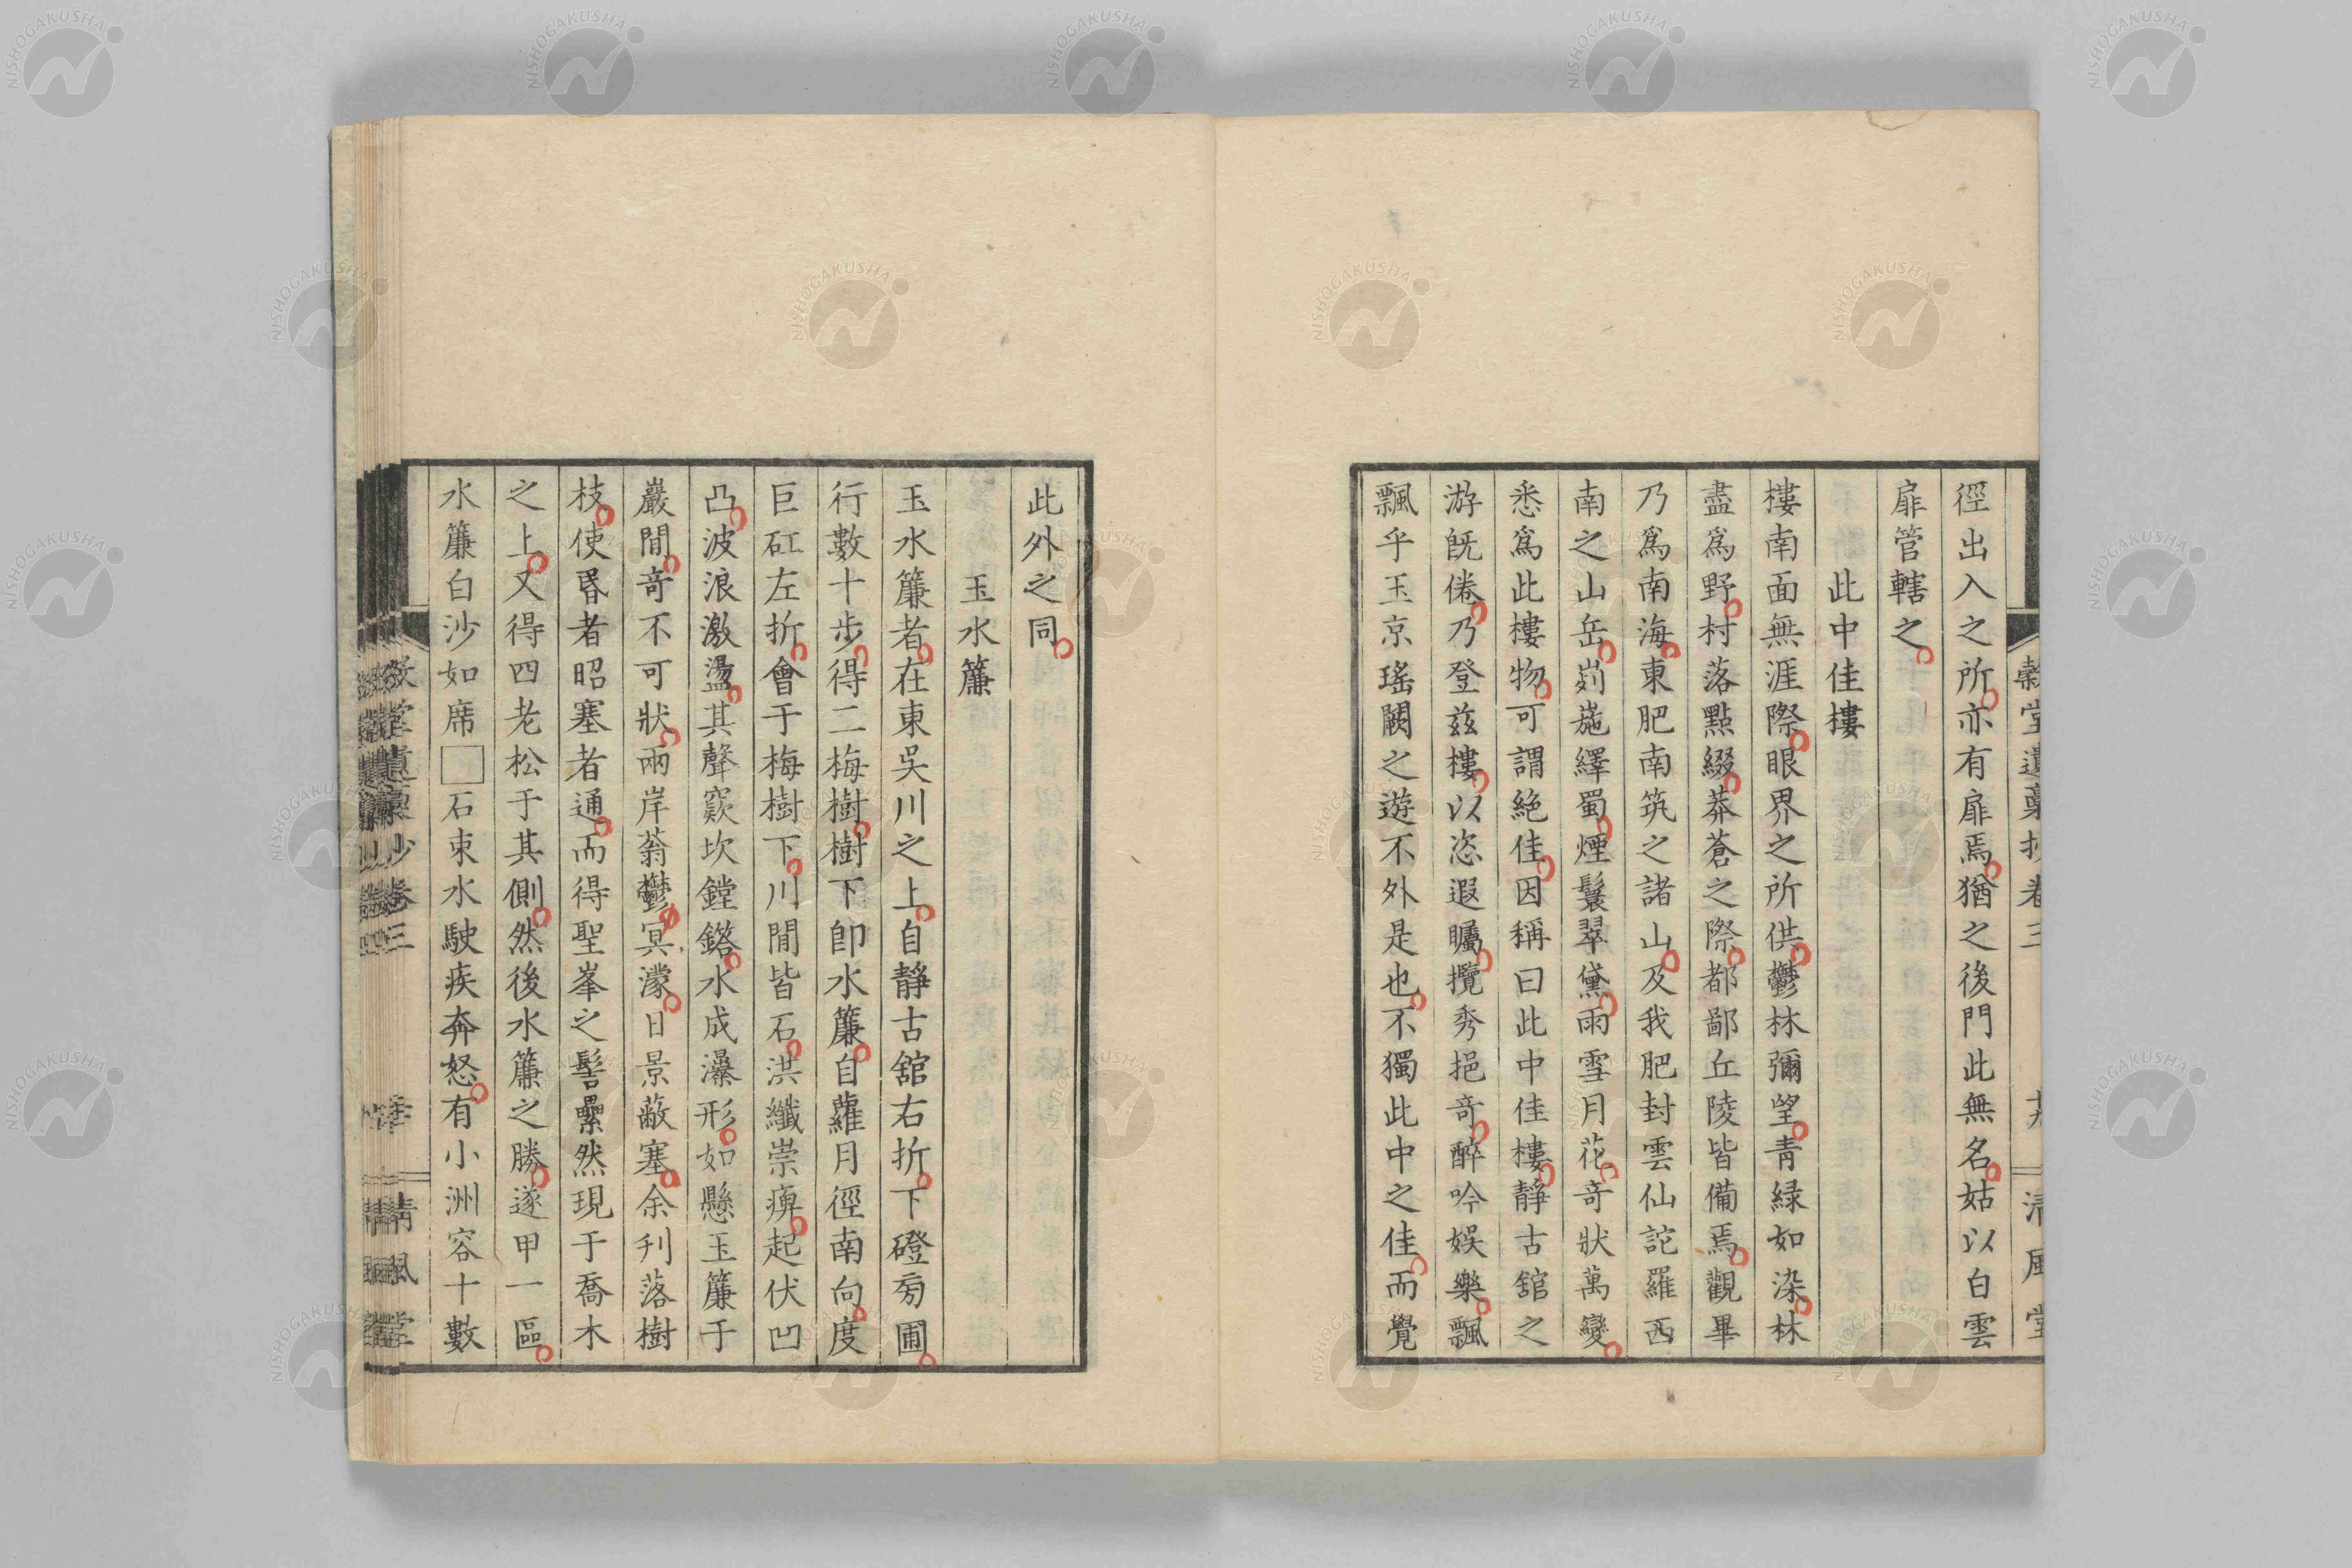 徑出入之所亦有扉焉猶之後門此無名姑以白雲
扉管轄之
此中佳樓
樓南面無涯際眼界之所供鬱林彌望青緑如染林
盡爲野村落點綴莽蒼之際都鄙丘陵皆備焉觀畢
乃爲南海東肥南筑之諸山及我肥封雲仙詑羅西
南之山岳峛崺繹蜀煙鬟翠黛雨雪月花奇狀萬變
悉爲此樓物可謂絶佳因稱曰此中佳樓靜古舘之
游旣倦乃登茲樓以恣遐矚攬秀挹奇醉吟娯樂飄
飄乎玉京瑤闕之遊不外是也不獨此中之佳而覺
此外之同
玉水簾
玉水簾者在東吳川之上自靜古舘右折下磴旁圃
行數十步得二梅樹樹下卽水簾自蘿月徑南向度
巨矼左折會于梅樹下川間皆石洪纖崇痺起伏凹
凸波浪激盪其聲窾坎鏜鎝水成瀑形如懸玉簾于
巖間奇不可狀兩岸蓊鬱冥濛日景蔽塞余刊落樹
枝使昬者昭塞者通而得聖峯之髻纍然現于喬木
之上又得四老松于其側然後水簾之勝遂甲一區
水簾白沙如席□石束水駛疾奔怒有小洲容十數
堂遺稾抄卷三
清風堂